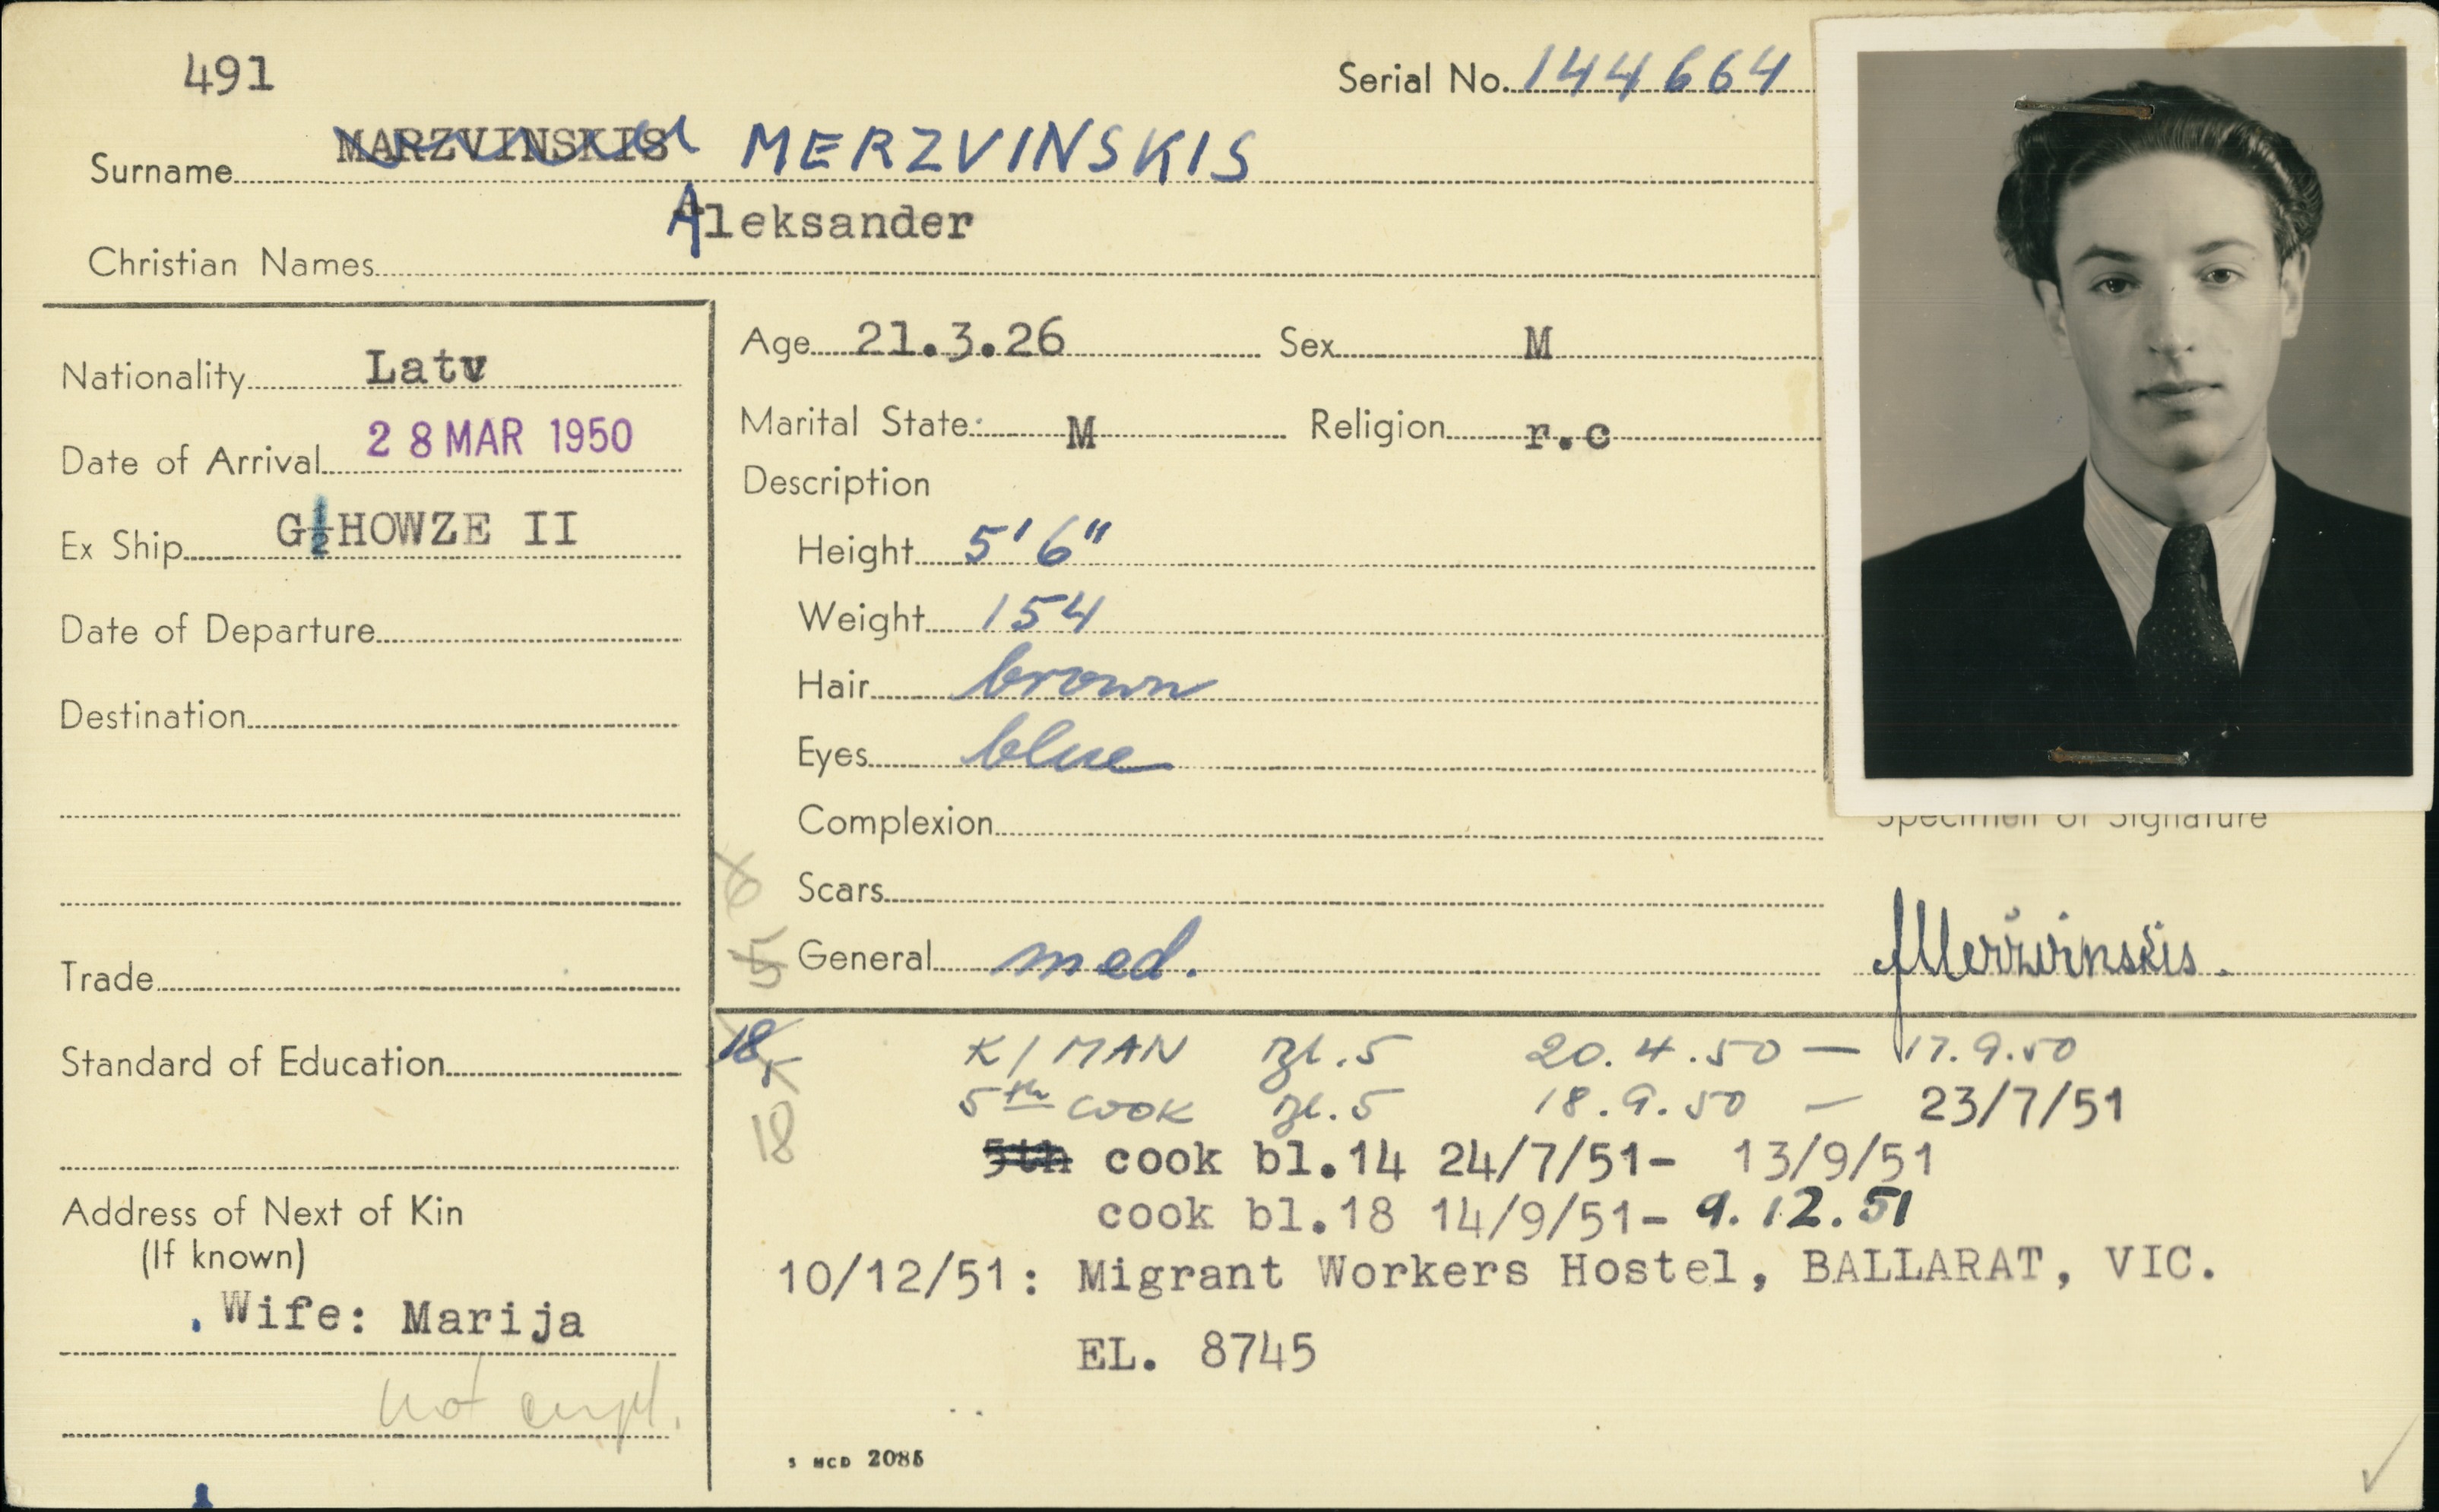 491
Serial No. 144664
Surname MARZVINSKIS MERZVINSKIS
Aleksander
Christian Names
Nationality Latv
Date of Arrival 28 MAR 1950
Ex Ship G½HOWZE II
Date of Departure
Destination
Trade
Standard of Education
Address of Next of Kin
(If known)
. Wife: Marija
not empl.
Age 21.3.26 Sex M
Marital State: M Religion r.c
Description
Height 5'6"
Weight 154
Hair brown
Eyes blue
Complexion
Scars
General med.
Specimen of Signature
AMerzvinskis.
5
18
18
K/MAN bl.5 20.4.50 — 17.9.50
5th cook bl.5 18.9.50 — 23/7/51
5th cook bl.14 24/7/51- 13/9/51
cook bl.18 14/9/51- 9.12.51
10/12/51: Migrant Workers Hostel, BALLARAT, VIC.
EL. 8745
S MCD 2085